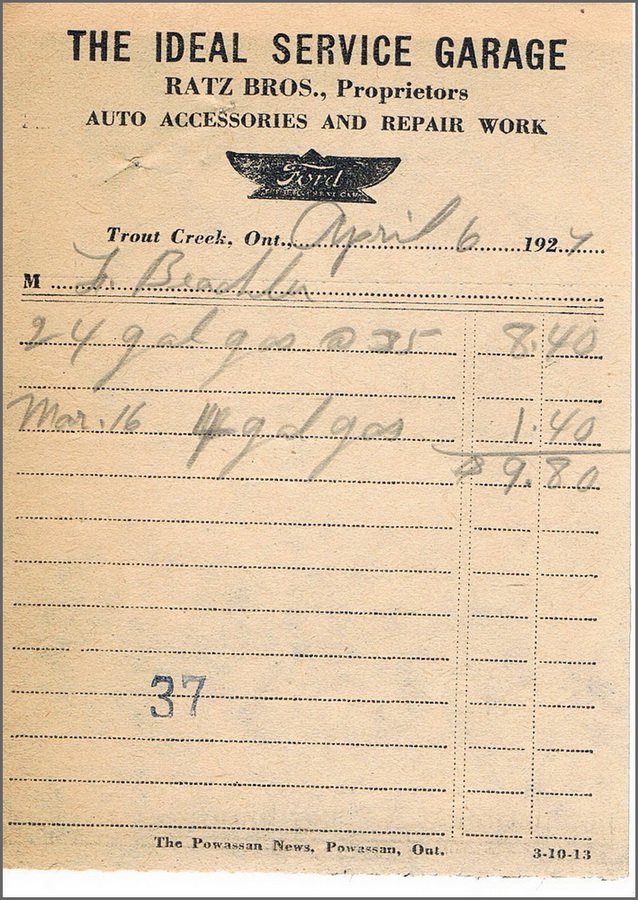 THE IDEAL SERVICE GARAGE
RATZ BROS., Proprietors
AUTO ACCESSORIES AND REPAIR WORK
Ford
Trout Creek, Ont., April 6 1927
M
24 gal gas @ 35 8.40
Mar. 16 4 gal gas 1.40
$9.80
37
The Powassan News, Powassan, Ont. 3-10-13